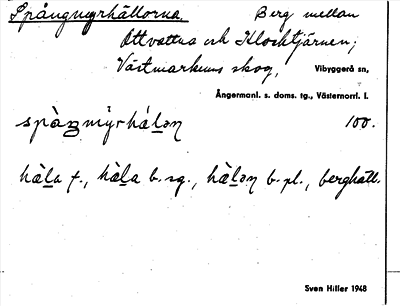 Spångmyrhällorna. Berg mellan
Åttvattna och Klocktjärnen;
Västmarkens skog, Vibyggerå sn,
Ångermanl. s. doms. tg., Västernorrl. l.
100.
hàla f., hàla b. sg., hàlan b. pl., berghäll.
Sven Hiller 1948